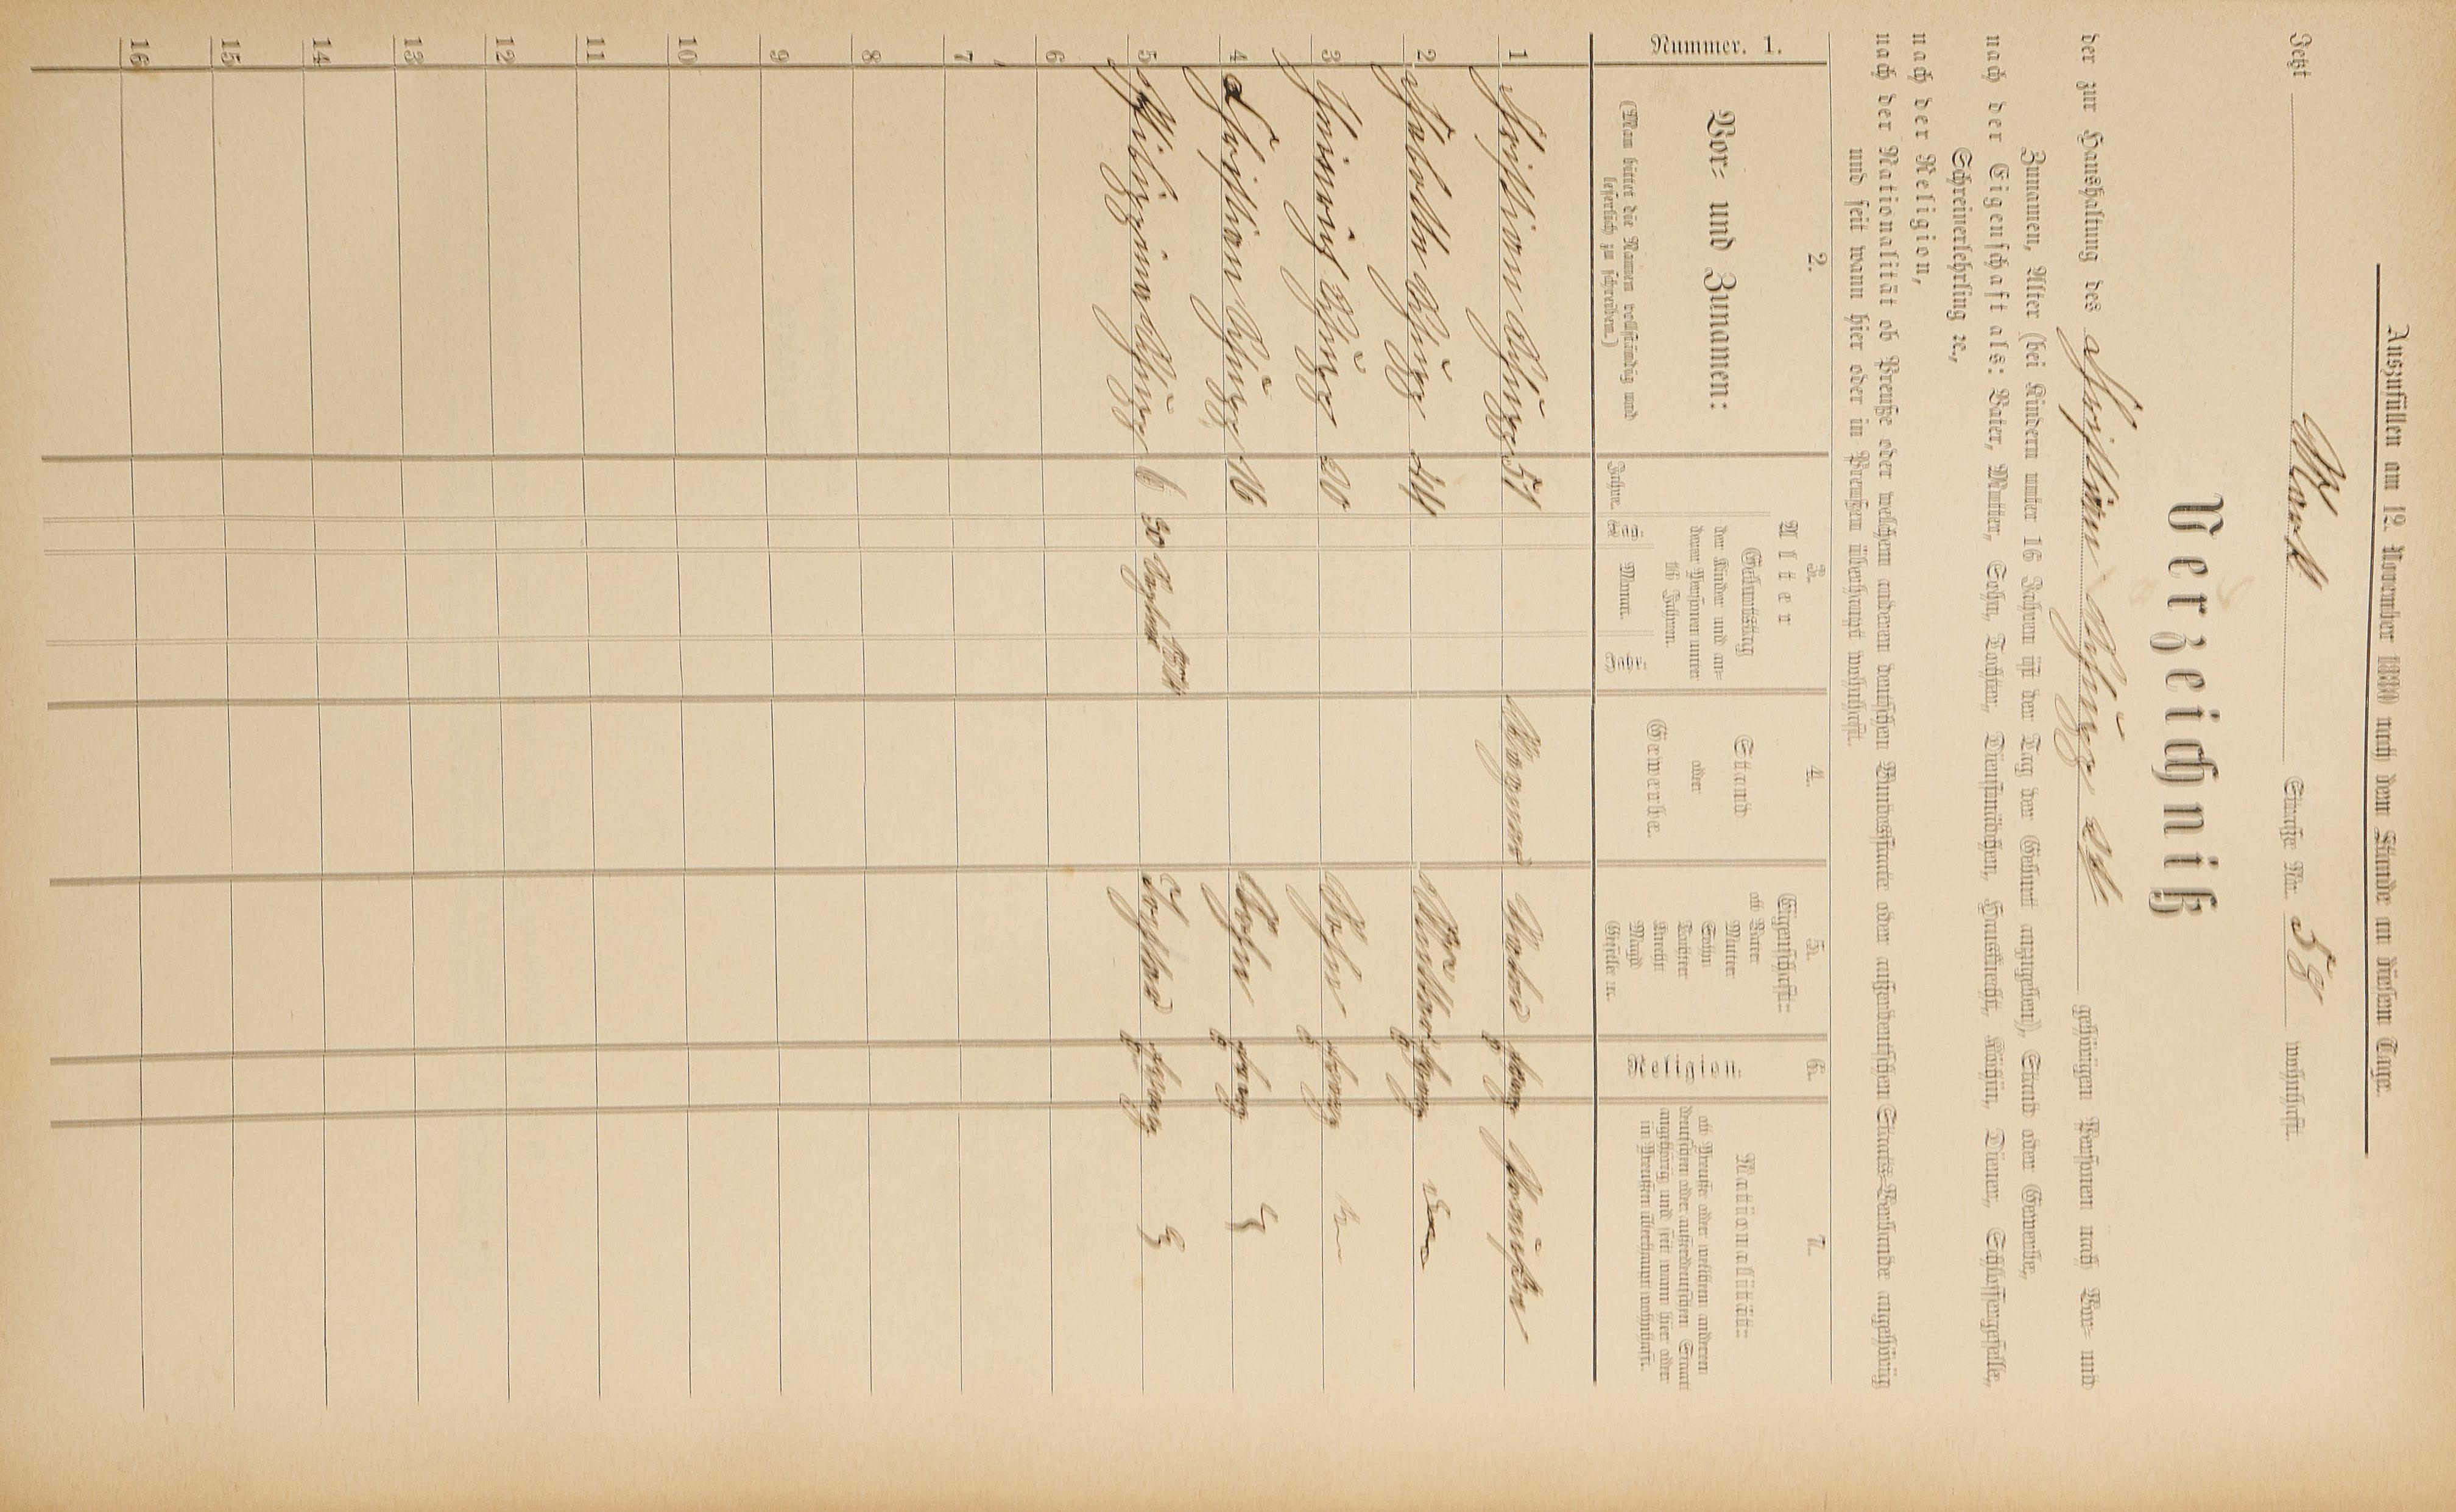 Auszufüllen am 12. November 1880 nach dem Stande an diesem Tage.
Jetzt Markt Straße Nr. 58 wohnhaft.
Verzeichniß
der zur Haushaltung des Christian Schütze gehörigen Personen nach Vor- und
Zunamen, Alter (bei Kindern unter 16 Jahren ist der Tag der Geburt anzugeben), Stand oder Gewerbe,
nach der Eigenschaft als: Vater, Mutter, Sohn, Tochter, Dienstmädchen, Hausknecht, Köchin, Diener, Schlossergeselle,
Schreinerlehrling ꝛc.,
nach der Religion,
nach der Nationalität ob Preuße oder welchem anderen deutschen Bundesstaate oder außerdeutschen Staats-Verbande angehörig
und seit wann hier oder in Preußen überhaupt wohnhaft.
Nummer. 1.
2.
Vor- und Zunamen:
(Man bittet die Namen vollständig und
leserlich zu schreiben.)
3.
Alter
Geburtstag
der Kinder und an-
derer Personen unter
16 Jahren.
Jahre. Monat.
4.
Stand
oder
Gewerbe.
5.
Eigenschaft:
ob Vater
Mutter
Sohn
Tochter
Knecht
Magd
Geselle ꝛc.
6.
Religion.
7.
Nationalität:
ob Preuße oder welchem anderen
deutschen oder außerdeutschen Staat
angehörig und seit wann hier oder
in Preußen überhaupt wohnhaft.
1 Christian Schütze 51 Wagner Vater Evang Preußen
2 Schütze 44 Mutter Evang
3 Heinrich Schütze 20 Sohn Evang
4 Christian Schütze 16 Sohn Evang
5 Schütze 6 30 1874 Tochter Evang
6
7
8
9
10
11
12
13
14
15
16